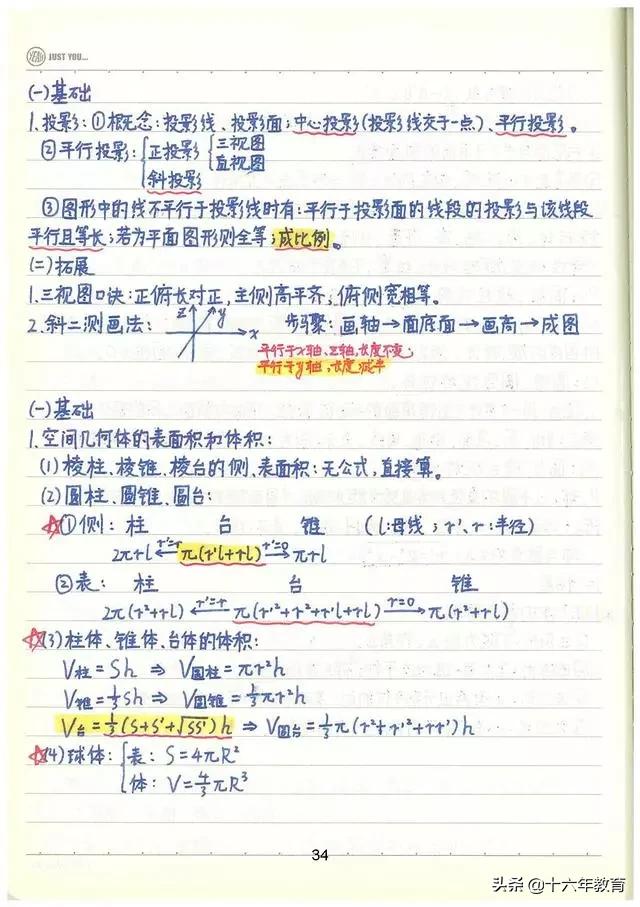 YEAH JUST YOU...
(一)基础
1.投影:①概念:投影线、投影面;中心投影(投影线交于一点)、平行投影。
②平行投影:{正投影{三视图
直视图
斜投影
③图形中的线不平行于投影线时有:平行于投影面的线段的投影与该线段
平行且等长;若为平面图形则全等;成比例。
(二)拓展
1.三视图口诀:正俯长对正,主侧高平齐,俯侧宽相等。
2.斜二测画法: z y x 步骤:画轴→画底面→画高→成图
平行于x轴、z轴,长度不变;
平行于y轴,长度减半
(一)基础
1.空间几何体的表面积和体积:
(1)棱柱、棱锥、棱台的侧、表面积:无公式,直接算。
(2)圆柱、圆锥、圆台:
☆①侧: 柱 台 锥 (l:母线;r'、r:半径)
2πrl ←r'=r— π(r'l+rl) —r'=0→ πrl
②表: 柱 台 锥
2π(r²+rl) ←r'=r— π(r'²+r²+r'l+rl) —r=0→ π(r²+rl)
☆(3)柱体、锥体、台体的体积:
V柱=Sh ⇒ V圆柱=πr²h
V锥=⅓Sh ⇒ V圆锥=⅓πr²h
V台=⅓(S+S'+√SS')h ⇒ V圆台=⅓π(r²+r'²+rr')h
☆(4)球体:{表:S=4πR²
体:V=4/3πR³
34
头条 @十六年教育